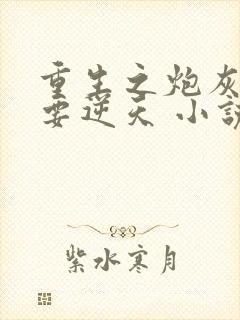 重生之炮灰
要逆天 小说
紫水寒月